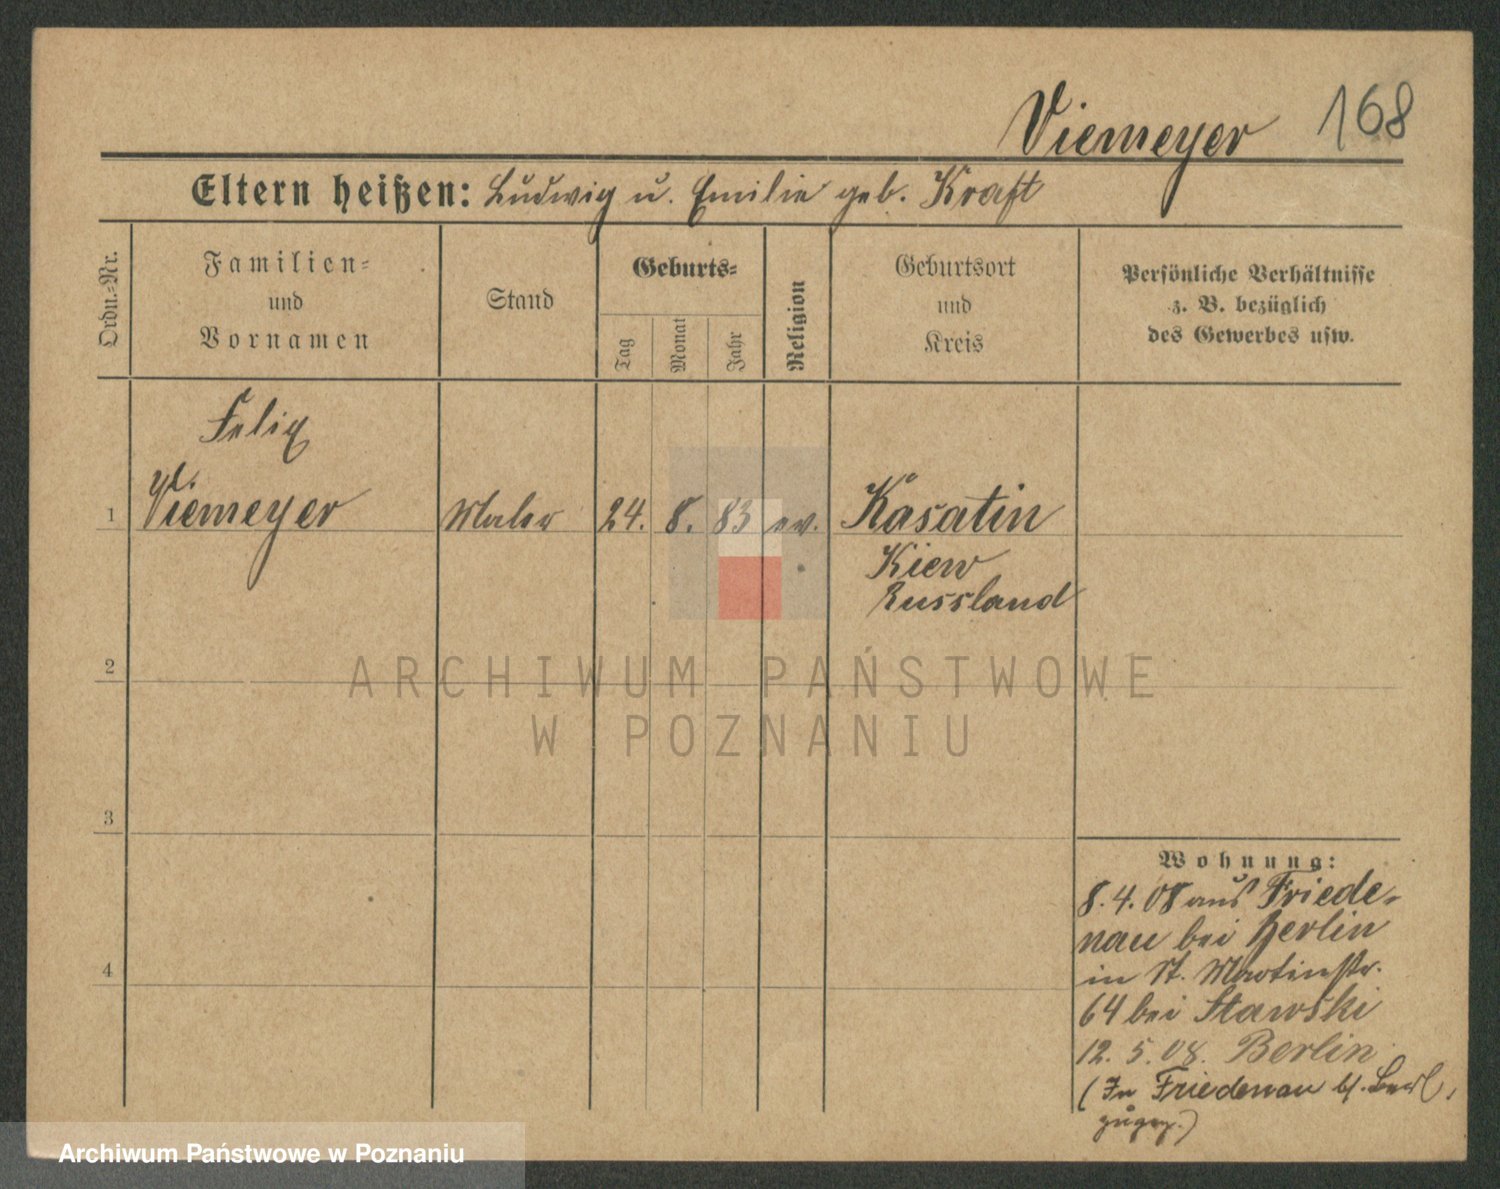 Viemeyer 168
Eltern heißen: Ludwig u. Emilie geb. Kraft
Ordn.-Nr.
Familien-
und
Vornamen
Stand
Geburts-
Tag
Monat
Jahr
Religion
Geburtsort
und
Kreis
Persönliche Verhältnisse
z. B. bezüglich
des Gewerbes usw.
Felix
1 Viemeyer Maler 24. 8. 83 ev. Kasatin
Kiew
Russland
2
3
4
Wohnung:
8.4.08 aus Friede-
nau bei Berlin
in St. Martinstr.
64 bei Stawski
12. 5. 08. Berlin
(In Friedenau b/. Berl.
zugez.)
ARCHIWUM PAŃSTWOWE
W POZNANIU
Archiwum Państwowe w Poznaniu